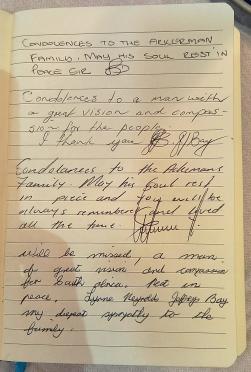 CONDOLENCES TO THE AKKERMAN
FAMILY. MAY HIS SOUL REST IN
PEACE SIR
Condolences to a man with
a great vision and compas-
sion for the people.
I thank you JBay
Condolances to the Ackermans
Family. May his Soul rest
in piece and you will be
always remembered and loved
all the time.
Will be missed, a man
of great vision and compassion
for both. Rest in
peace. Lynne Reynolds Jeffreys Bay
my deepest sympathy to the
family.